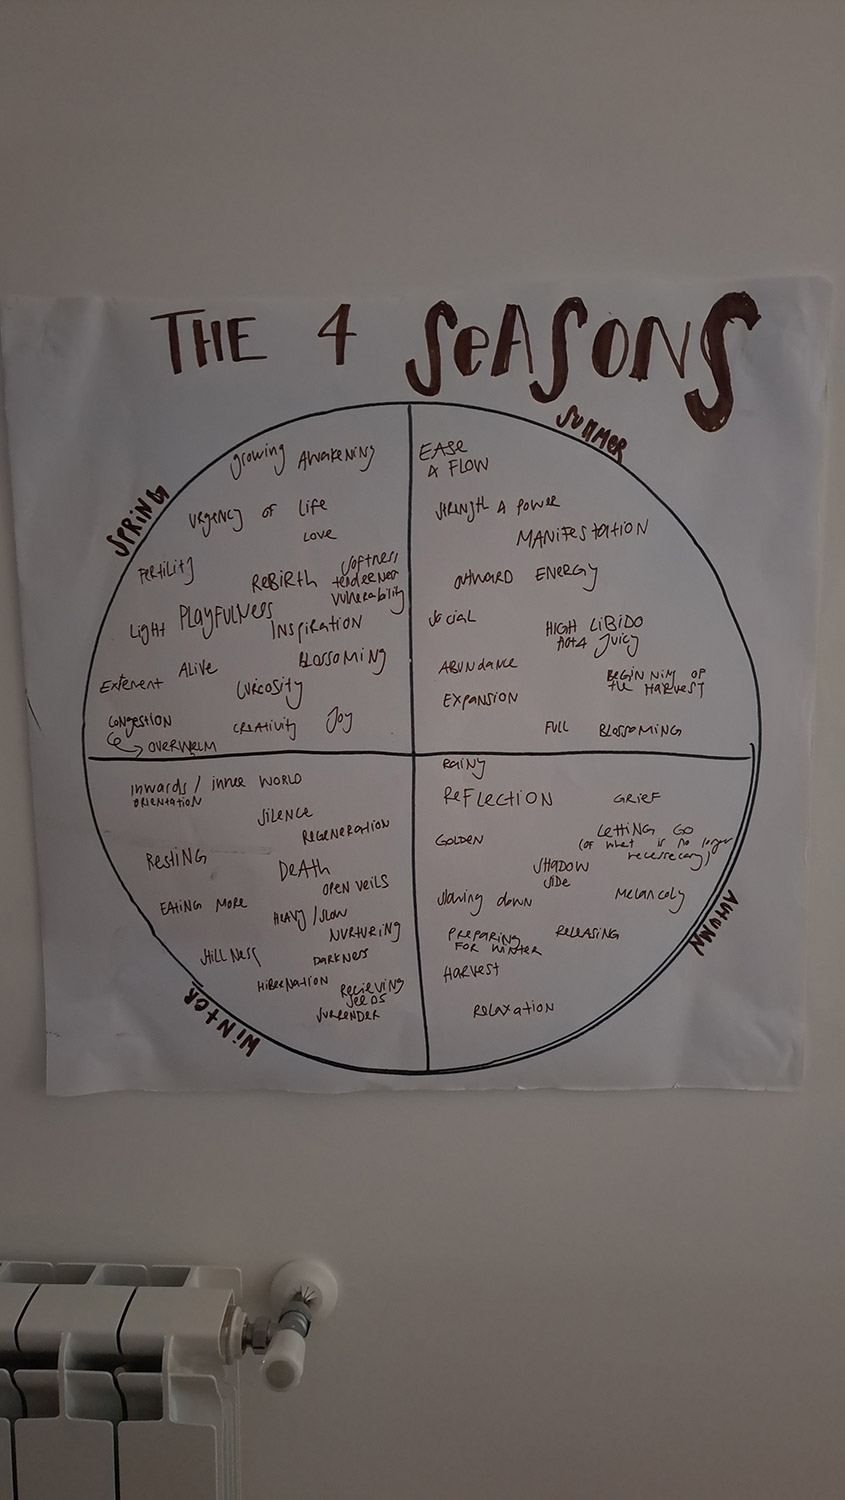 THE 4 SEASONS
SPRING
growing AWAKENING
URGENCY OF LIFE
LOVE
FERTILITY
REBIRTH
SOFTNESS
tenderness
vulnerability
Light PLAYFULNESS
INSPIRATION
ALIVE
BLOSSOMING
CURIOSITY
CONGESTION
OVERWELM
CREATIVITY
JOY
SUMMER
EASE
& FLOW
STRENGTH & POWER
MANIFESTATION
OUTWARD ENERGY
SOCIAL
HIGH LIBIDO
HOT & JUICY
ABUNDANCE
BEGINNING OF
the HARVEST
EXPANSION
FULL BLOSSOMING
inwards / inner WORLD
ORIENTATION
SILENCE
REGENERATION
RESTING
DEATH
OPEN VEILS
EATING MORE
HEAVY / SLOW
NURTURING
STILLNESS
DARKNESS
HIBERNATION
RECIEVING
SEEDS
SURRENDER
WINTER
RAINY
REFLECTION
GRIEF
GOLDEN
LETTING GO
(of what is no longer
necessecary)
SHADOW
SIDE
Slowing down
MELANCOLY
PREPARING
FOR WINTER
RELEASING
HARVEST
RELAXATION
AUTUMN